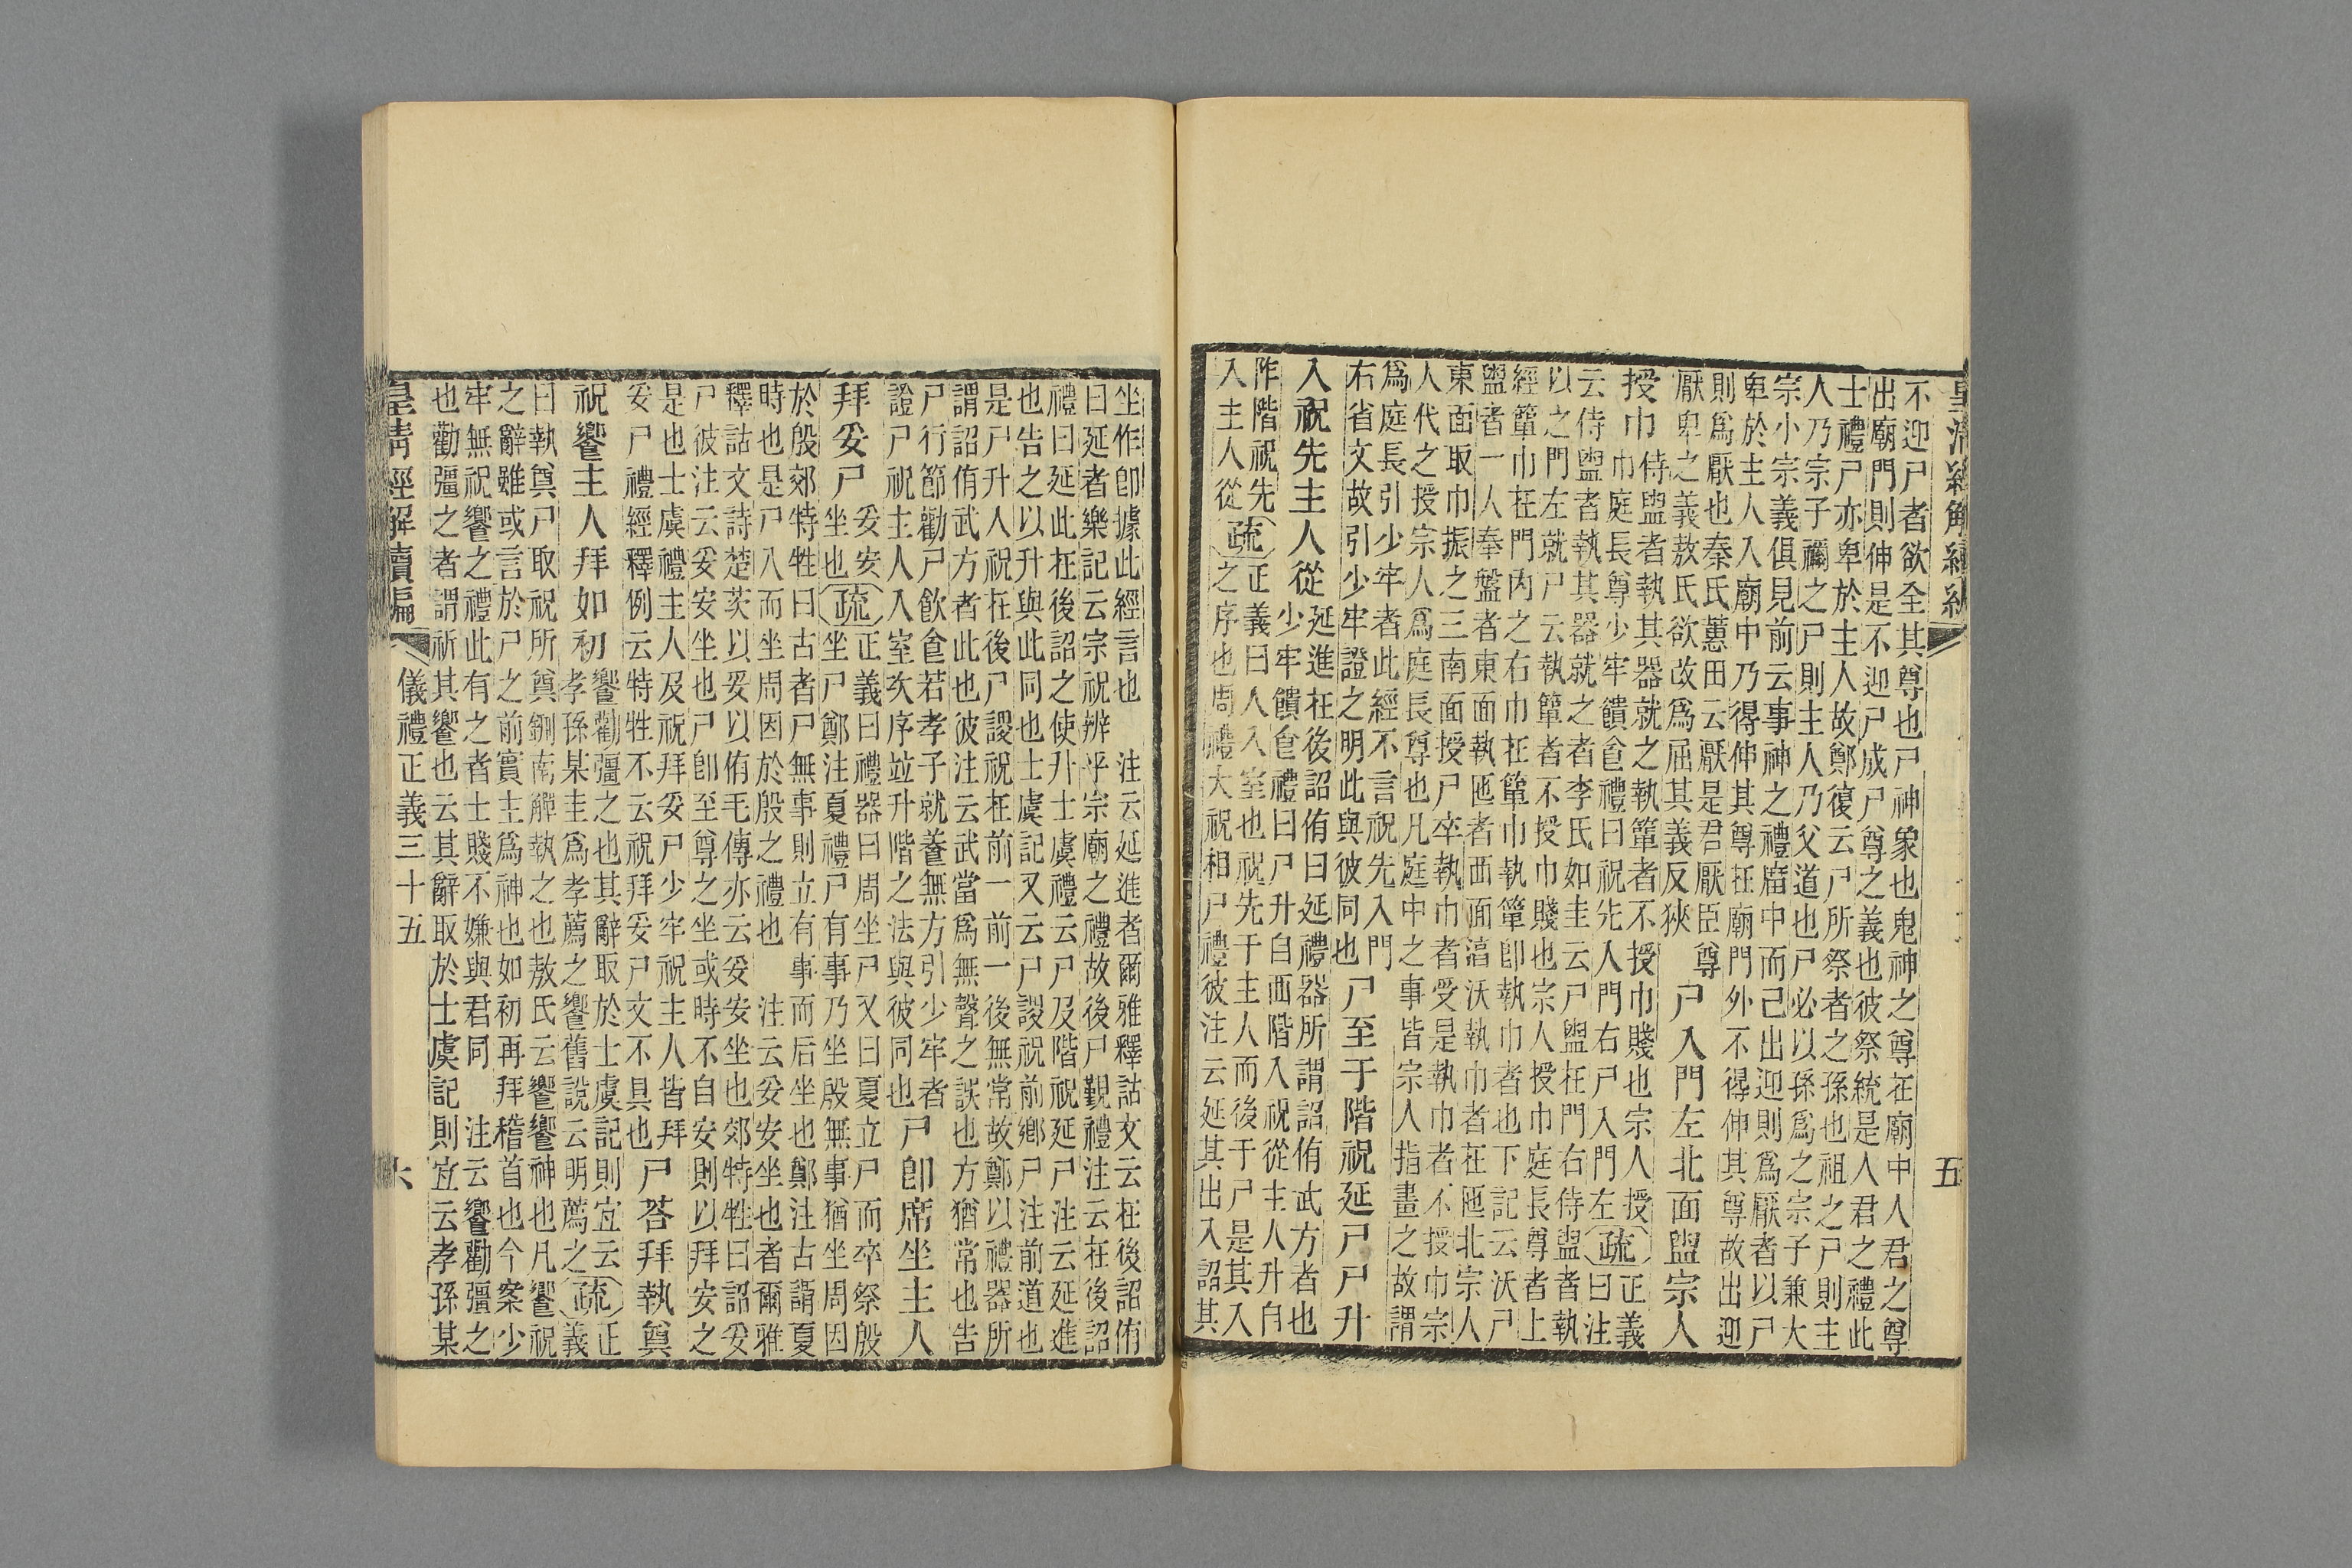 皇清經解續編
五
不迎尸者欲全其尊也尸神象也鬼神之尊在廟中人君之尊
出廟門則伸是不迎尸成尸尊之義也彼祭統是人君之禮此
士禮尸亦卑於主人故鄭復云尸所祭者之孫也祖之尸則主
人乃宗子禰之尸則主人乃父道也尸必以孫爲之宗子兼大
宗小宗義俱見前云事神之禮廟中而已出迎則爲厭者以尸
卑於主人入廟中乃得伸其尊在廟門外不得伸其尊故出迎
則爲厭也秦氏蕙田云厭是君厭臣尊
厭卑之義敖氏欲改爲屈其義反狹
尸入門左北面盥宗人
授巾
侍盥者執其器就之執簞者不授巾賤也宗人授
巾庭長尊少牢饋食禮曰祝先入門右尸入門左
疏
正義
曰注
云侍盥者執其器就之者李氏如圭云尸盥在門右侍盥者執
以之門左就尸云執簞者不授巾賤也宗人授巾庭長尊者上
經簞巾在門內之右巾在簞巾執簞卽執巾者也下記云沃尸
盥者一人奉盤者東面執匜者西面淯沃執巾者在匜北宗人
東面取巾振之三南面授尸卒執巾者受是執巾者不授巾宗
人代之授宗人爲庭長尊也凡庭中之事皆宗人指畫之故謂
爲庭長引少牢者此經不言祝先入門
右省文故引少牢證之明此與彼同也
尸至于階祝延尸尸升
入祝先主人從
延進在後詔侑曰延禮器所謂詔侑武方者也
少牢饋食禮曰尸升自西階入祝從主人升自
阼階祝先
入主人從
疏
正義曰人入室也祝先于主人而後于尸是其入
之序也周禮大祝相尸禮彼注云延其出入詔其
坐作卽據此經言也 注云延進者爾雅釋詁文云在後詔侑
曰延者樂記云宗祝辨乎宗廟之禮故後尸覲禮注云在後詔
禮曰延此在後詔之使升士虞禮云尸及階祝延尸注云延進
也告之以升與此同也士虞記又云尸謖祝前鄉尸注前道也
是尸升人祝在後尸謖祝在前一前一後無常故鄭以禮器所
謂詔侑武方者此也彼注云武當爲無聲之誤也方猶常也告
尸行節勸尸飮食若孝子就養無方引少牢者
證尸祝主人入室次序竝升階之法與彼同也
尸卽席坐主人
拜妥尸
妥安
坐也
疏
正義曰禮器曰周坐尸又曰夏立尸而卒祭殷
坐尸鄭注夏禮尸有事乃坐殷無事猶坐周因
於殷郊特牲曰古者尸無事則立有事而后坐也鄭注古謂夏
時也是尸八而坐周因於殷之禮也 注云妥安坐也者爾雅
釋詁文詩楚茨以妥以侑毛傳亦云妥安坐也郊特牲曰詔妥
尸彼注云妥安坐也尸卽至尊之坐或時不自安則以拜安之
是也士虞禮主人及祝拜妥尸少牢祝主人皆拜
妥尸禮經釋例云特牲不云祝拜妥尸文不具也
尸荅拜執奠
祝饗主人拜如初
饗勸彊之也其辭取於士虞記則宜云
孝孫某圭爲孝薦之饗舊說云明薦之
疏
正
義
曰執奠尸取祝所奠鉶南觶執之也敖氏云饗饗神也凡饗祝
之辭雖或言於尸之前實主爲神也如初再拜稽首也今案少
牢無祝饗之禮此有之者士賤不嫌與君同 注云饗勸彊之
也勸彊之者謂祈其饗也云其辭取於士虞記則宜云孝孫某
皇清經解續編
儀禮正義三十五